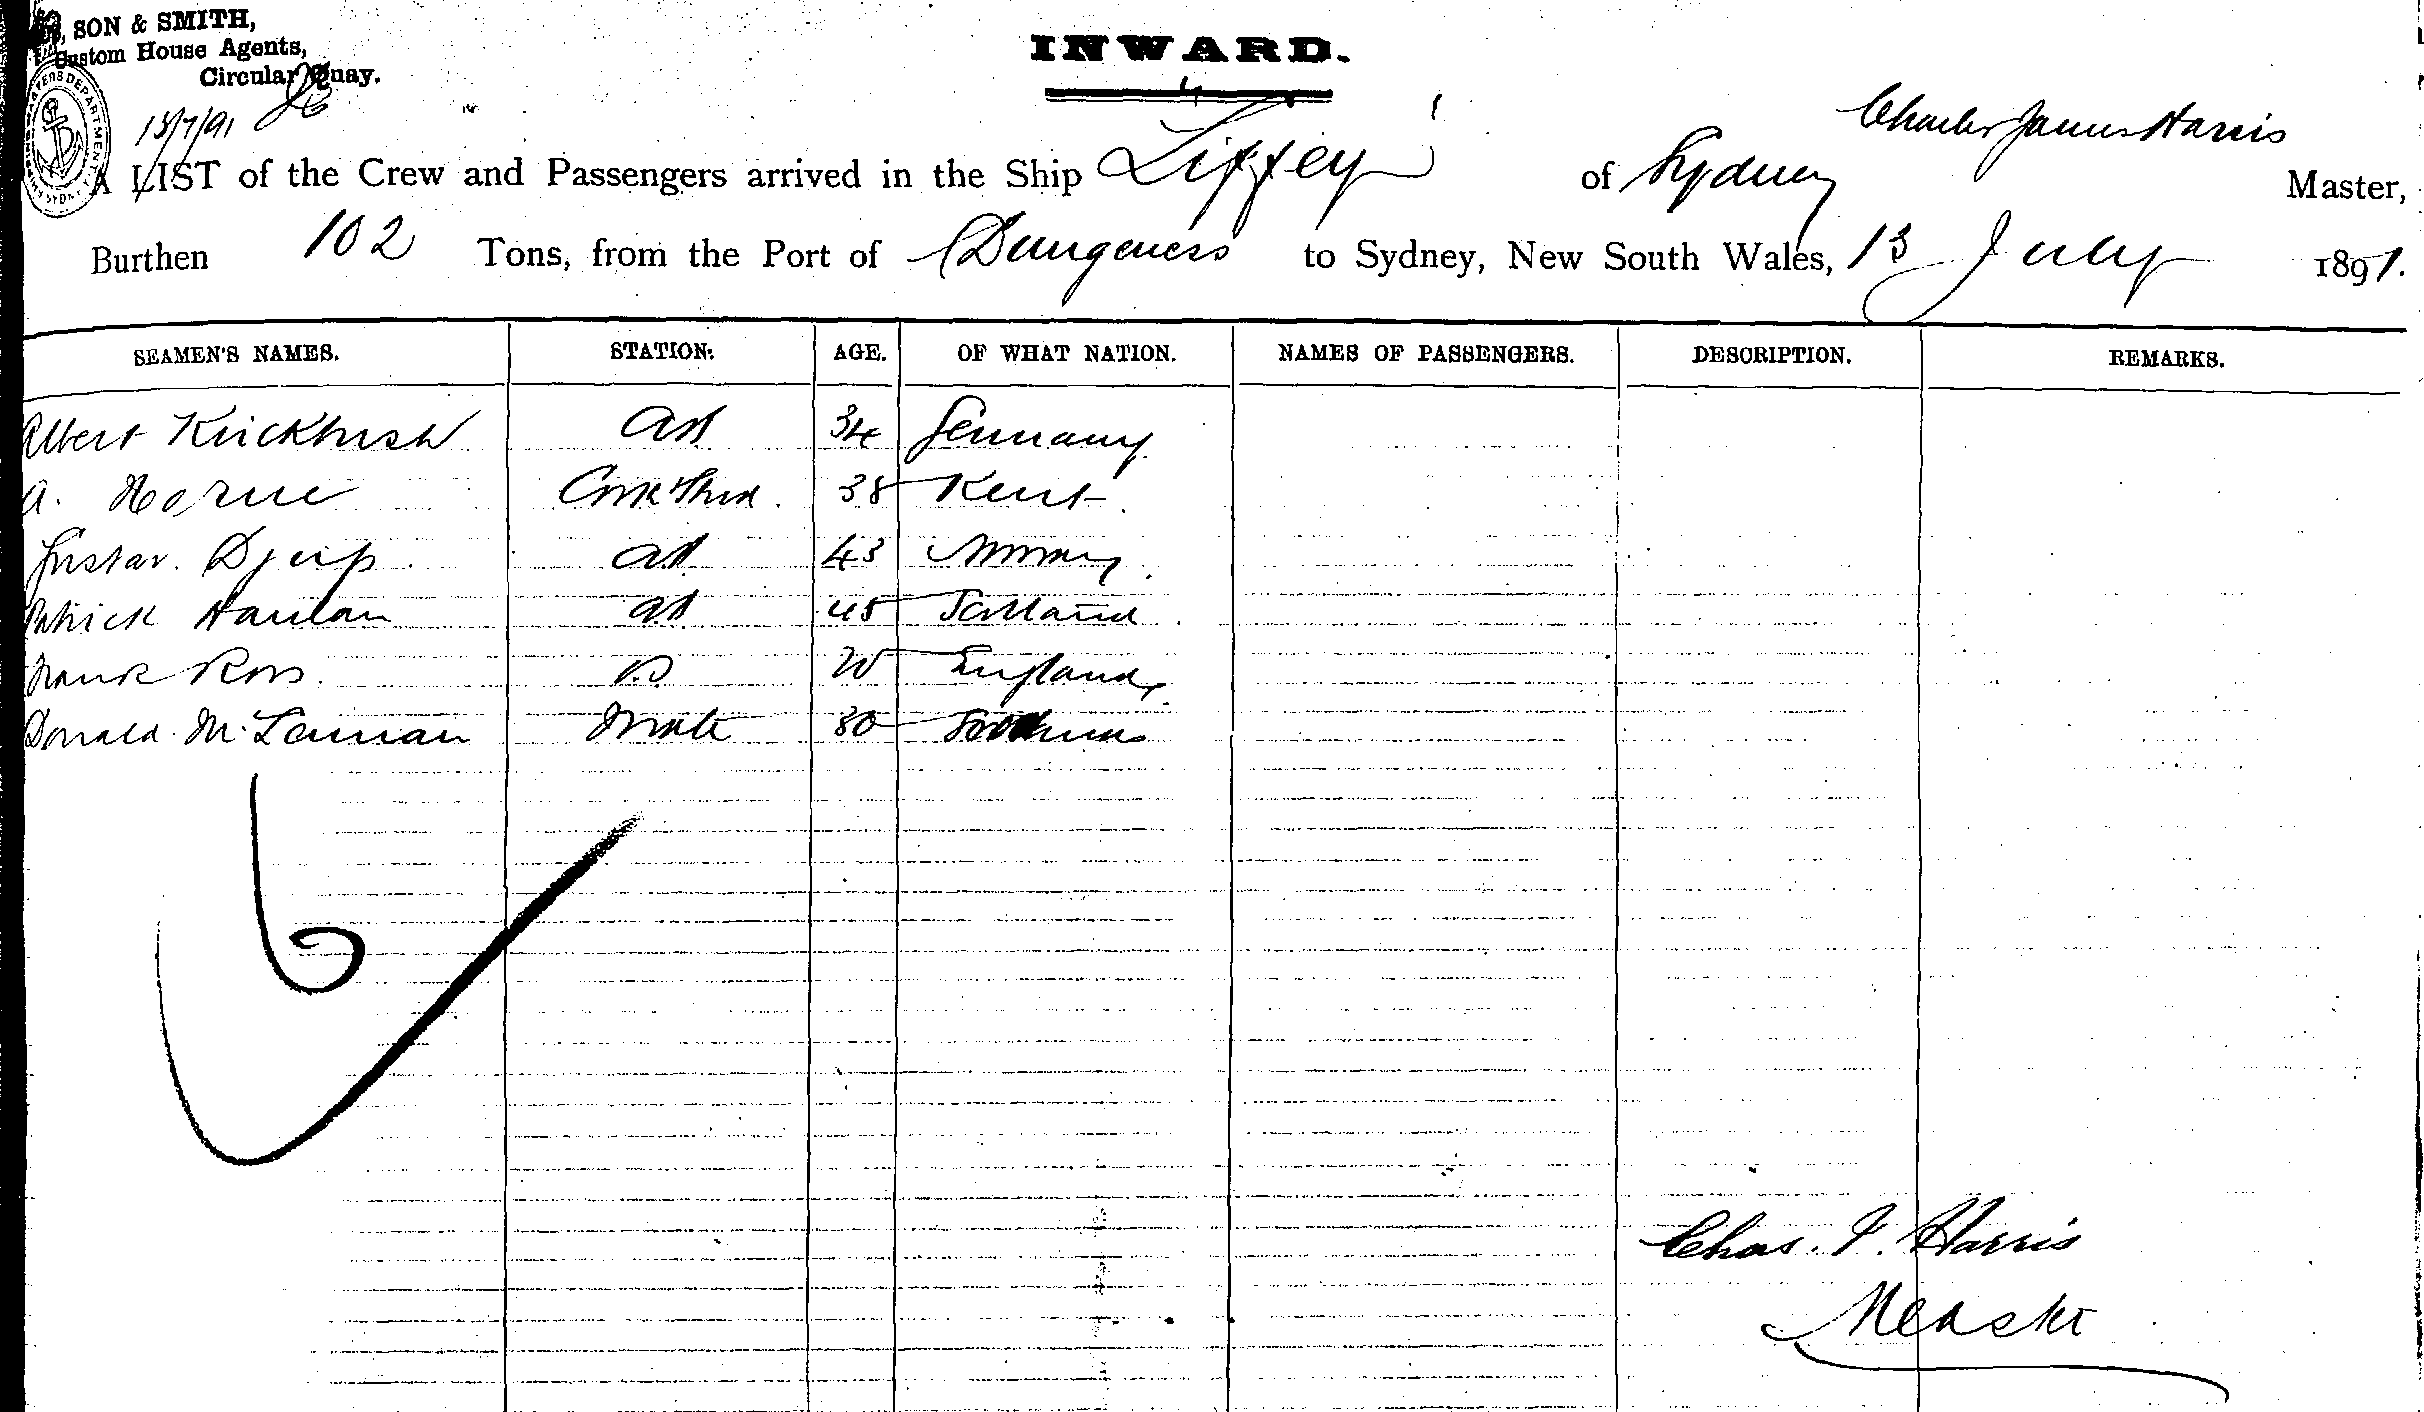 SON & SMITH,
Custom House Agents,
Circular Quay.
INWARD.
13/7/91
Charles James Harris
A LIST of the Crew and Passengers arrived in the Ship "Liffey" of Sydney Master,
Burthen 102 Tons, from the Port of Dungeness to Sydney, New South Wales, 13 July 1891.
SEAMEN'S NAMES. STATION. AGE. OF WHAT NATION. NAMES OF PASSENGERS. DESCRIPTION. REMARKS.
Albert AB 34 Germany
A. Horne 38 Kent
Gustav. Djup. AB 43 Norway
Patrick Hanlan AB 45 Scotland
Frank Ross. England
Donald McLennan Mate 30
Chas. J. Harris
Master